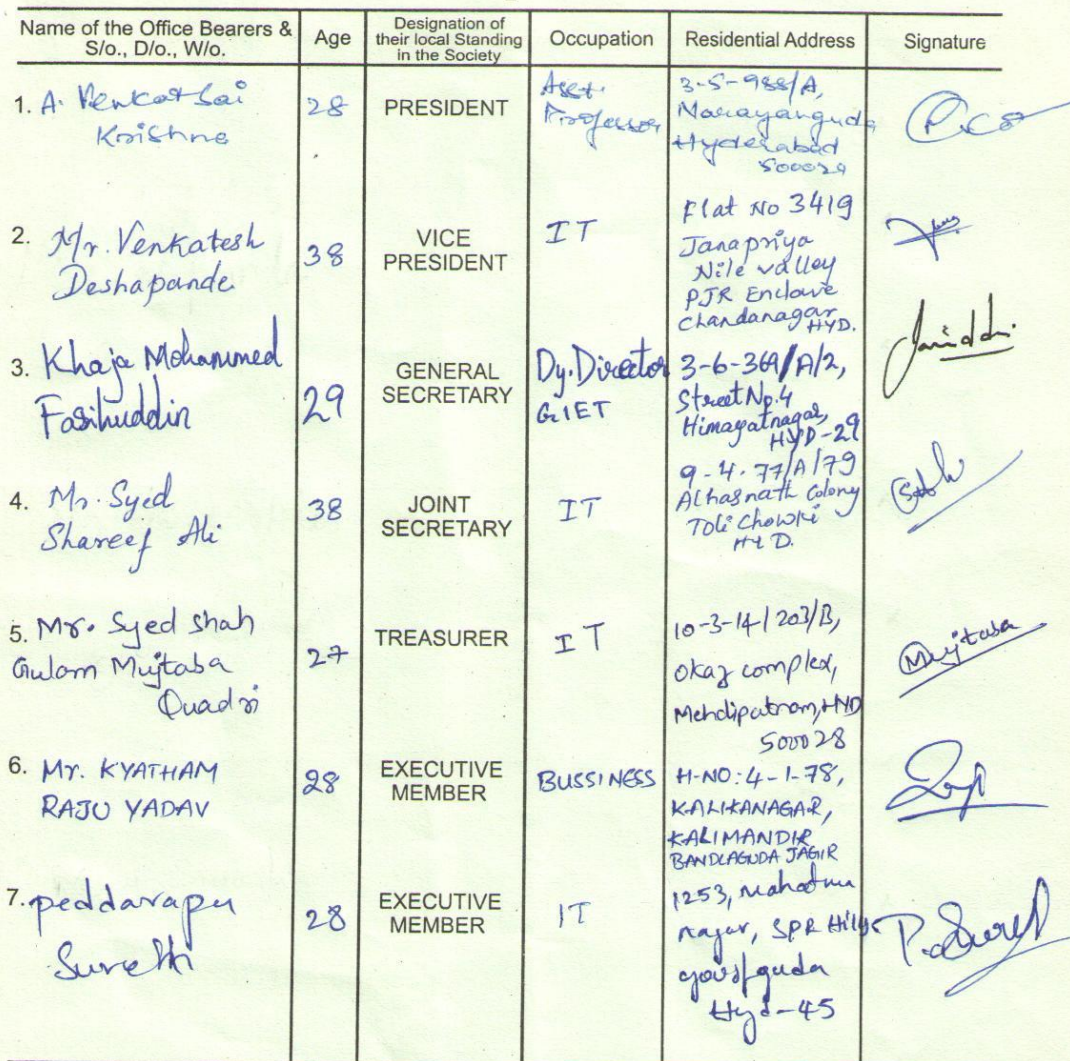 Name of the Office Bearers &
S/o., D/o., W/o.
Age
Designation of
their local Standing
in the Society
Occupation
Residential Address
Signature
1. A. Venkat Sai
Krishna
28
PRESIDENT
Asst.
Professor
3-5-988/A,
Narayanguda
Hyderabad
500029
2. Mr. Venkatesh
Deshapande
38
VICE
PRESIDENT
IT
Flat No 3419
Janapriya
Nile valley
PJR Enclave
Chandanagar
HYD.
3. Khaja Mohammed
Fasihuddin
29
GENERAL
SECRETARY
Dy. Director
GIET
3-6-369/A/2,
Street No.4
Himayatnagar,
HYD-29
4. Mr. Syed
Shareef Ali
38
JOINT
SECRETARY
IT
9-4-77/A/79
Alhasnath Colony
Toli Chowki
HYD.
5. Mr. Syed Shah
Gulam Mujtaba
Quadri
27
TREASURER
IT
10-3-14/203/B,
Okaz complex,
Mehdipatnam, HYD
500028
Mujtaba
6. Mr. KYATHAM
RAJU YADAV
28
EXECUTIVE
MEMBER
BUSSINESS
H-NO: 4-1-78,
KALIKANAGAR,
KALIMANDIR
BANDLAGUDA JAGIR
7. Peddarapu
Suresh
28
EXECUTIVE
MEMBER
IT
1253, Mahatma
nagar, SPR Hills
Hyd-45
P. Suresh